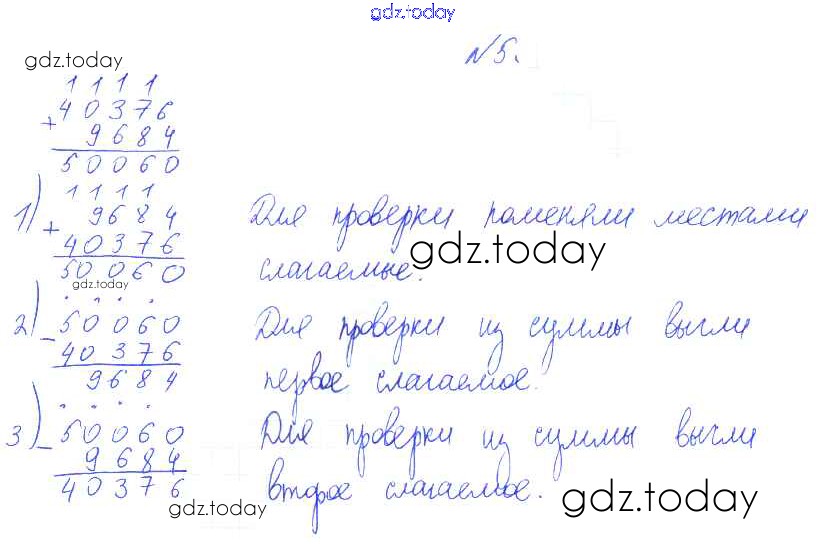 gdz.today
№5.
gdz.today
1 1 1 1
+ 40376
9684
50060
1) 1 1 1 1
+ 9684
40376
50060
Для проверки поменяли местами
слагаемые.
gdz.today
gdz.today
2) - 50060
40376
9684
Для проверки из суммы вычли
первое слагаемое.
3) - 50060
9684
40376
Для проверки из суммы вычли
второе слагаемое.
gdz.today
gdz.today